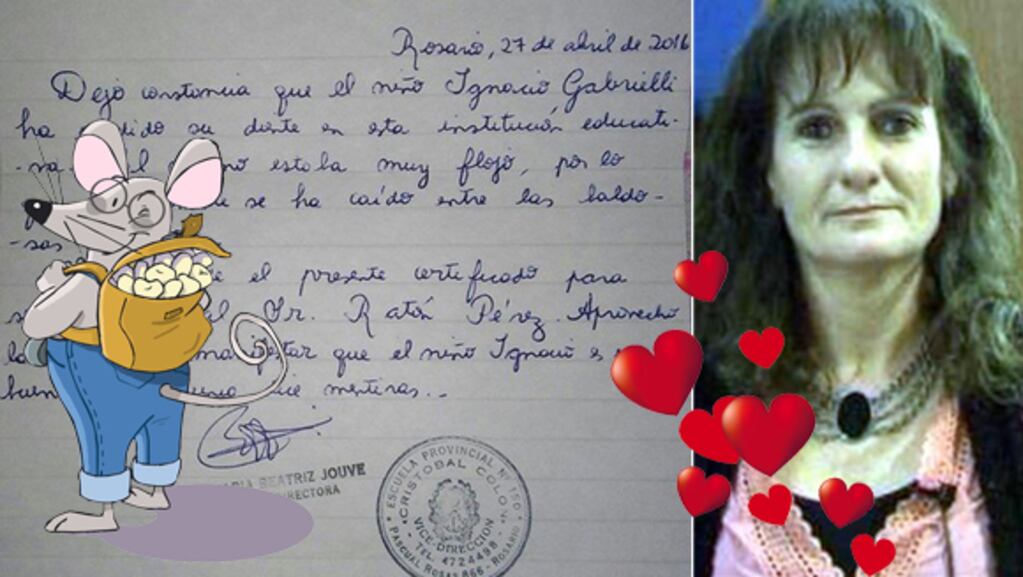 Rosario, 27 de abril de 2016
Dejo constancia que el niño Ignacio Gabrielli
ha su diente en esta institución educati-
-va estaba muy flojo, por lo
se ha caído entre las baldo-
-sas
el presente certificado para
Sr. Ratón Pérez. Aprovecho
que el niño Ignacio es
mentiras..
BEATRIZ JOUVE
DIRECTORA
ESCUELA PROVINCIAL Nº
"CRISTOBAL COLON"
VICE-DIRECCION
TEL. 4724498
PASCUAL ROSAS 866 - ROSARIO